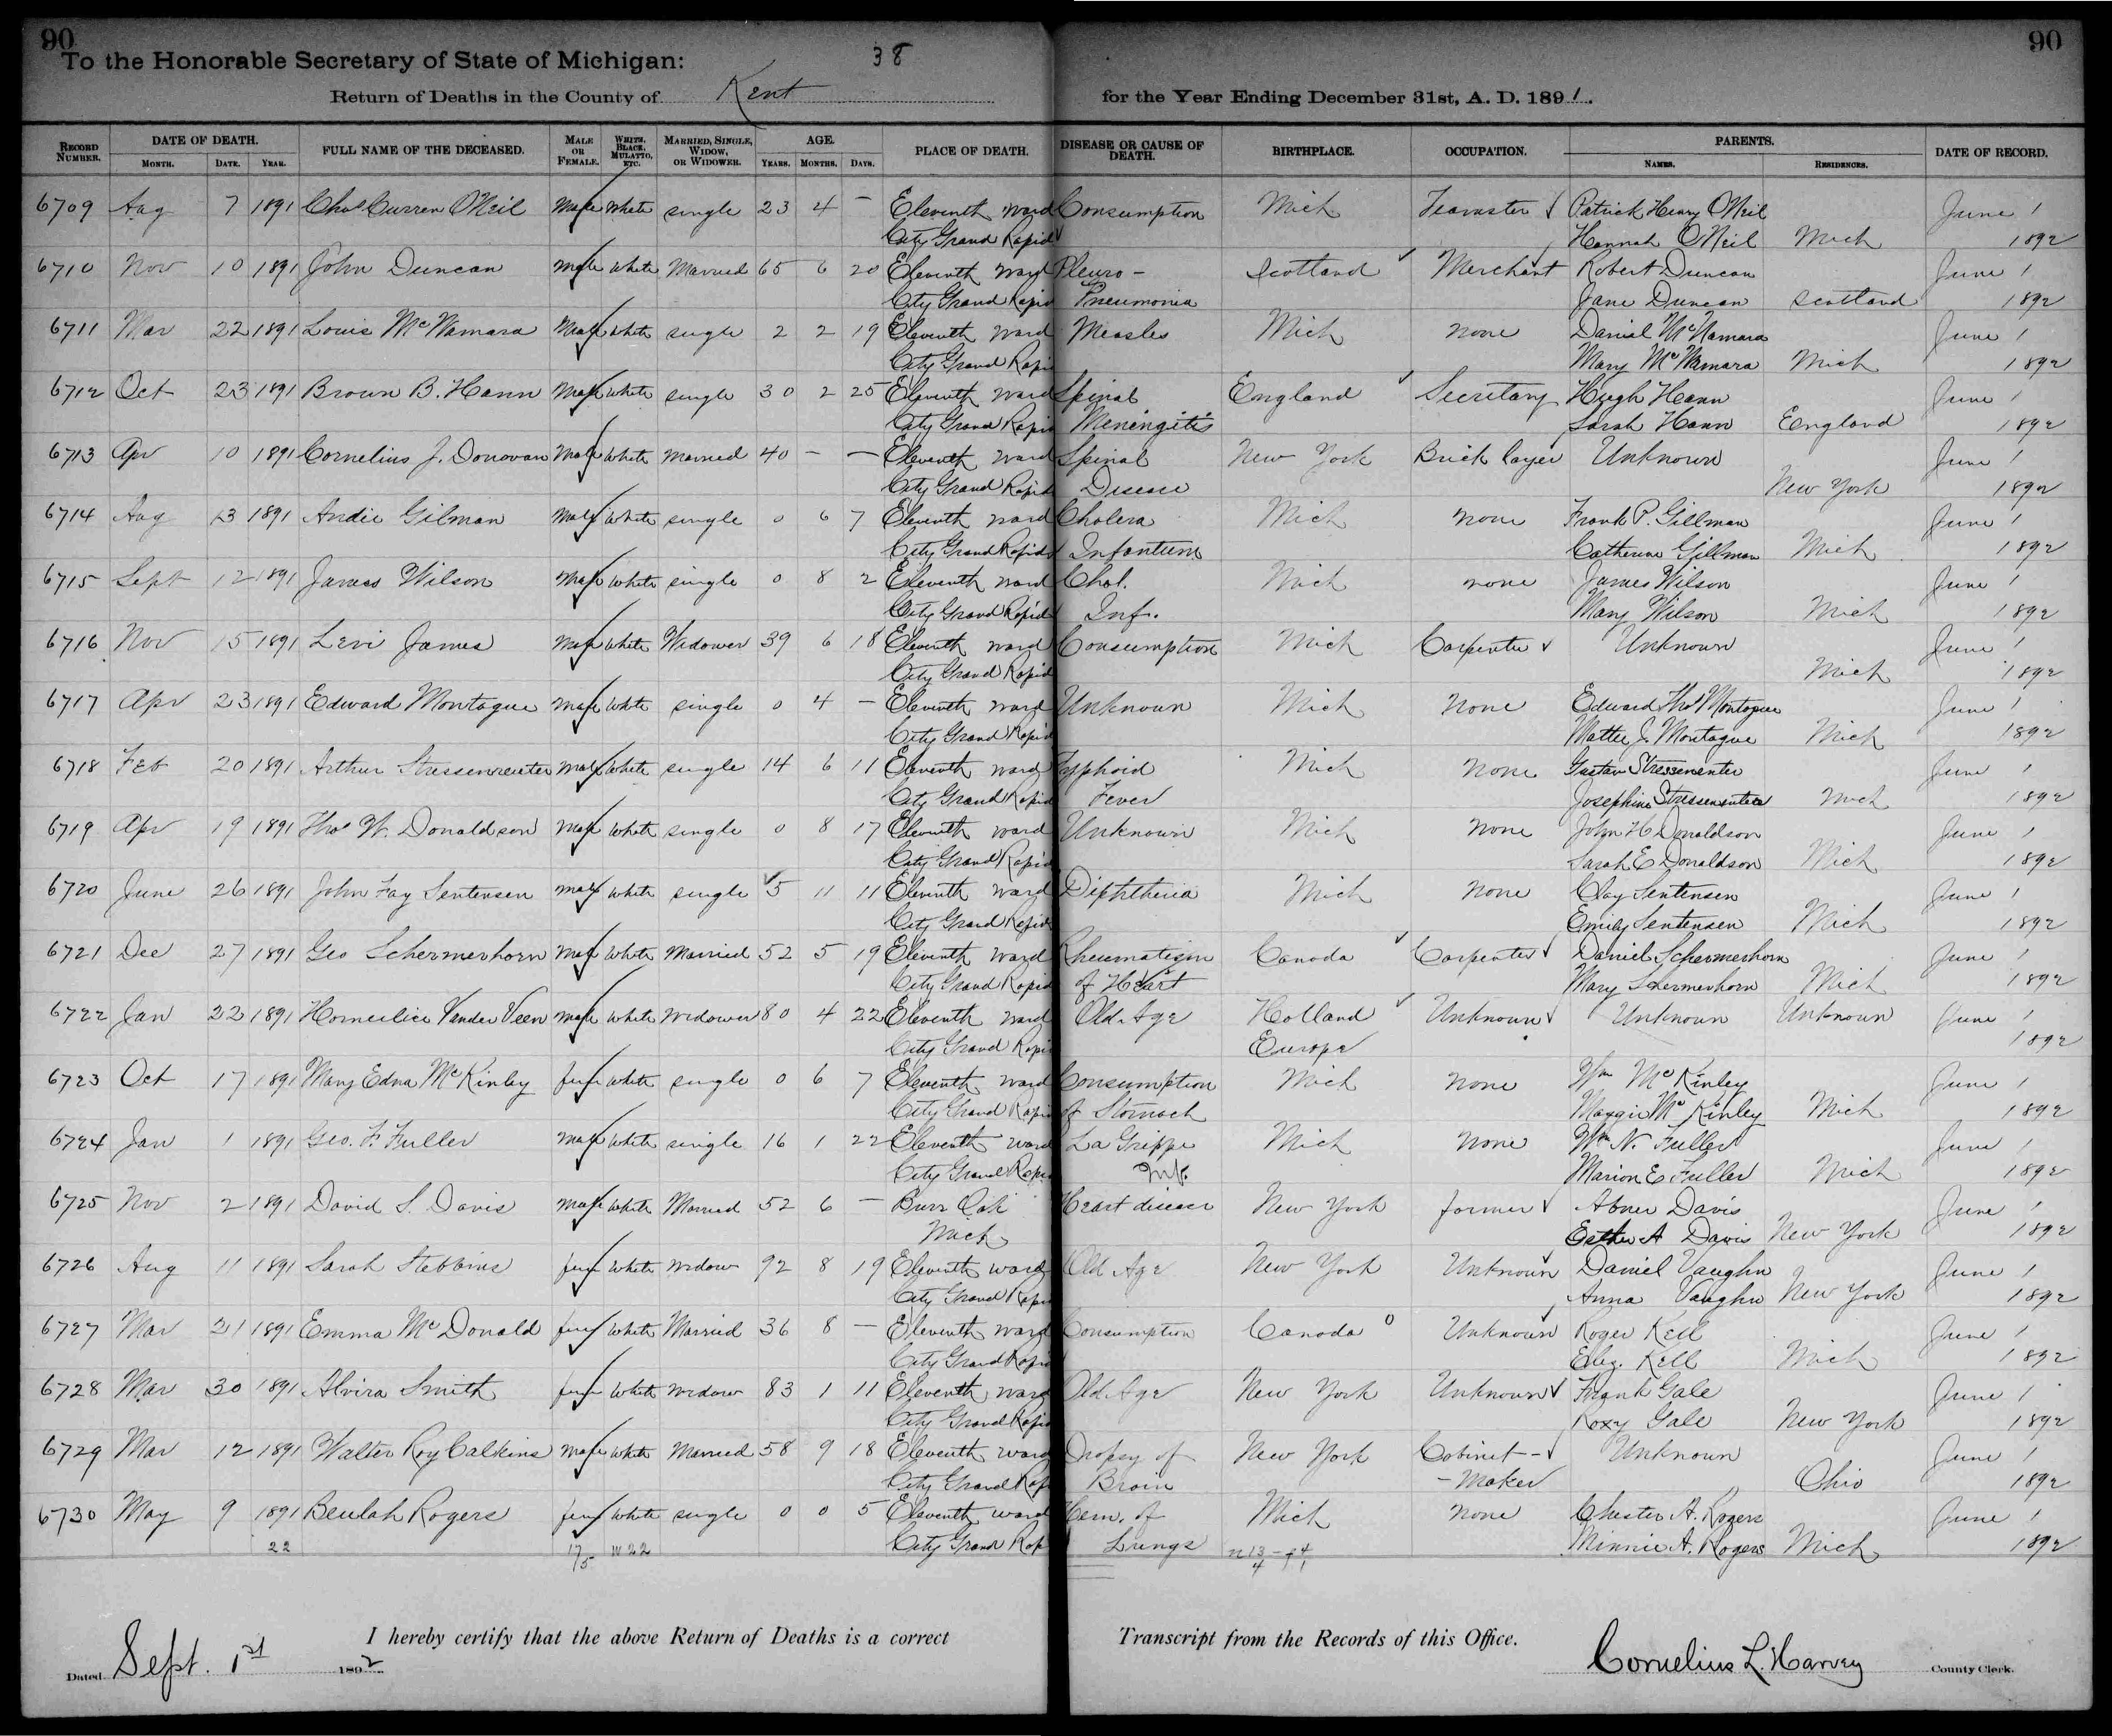 90
90
To the Honorable Secretary of State of Michigan:
38
Return of Deaths in the County of Kent
for the Year Ending December 31st, A. D. 1891.
RECORD NUMBER. DATE OF DEATH. FULL NAME OF THE DECEASED. MALE OR FEMALE. WHITE, BLACK, MULATTO, ETC. MARRIED, SINGLE, WIDOW, OR WIDOWER. AGE. PLACE OF DEATH. DISEASE OR CAUSE OF DEATH. BIRTHPLACE. OCCUPATION. PARENTS. DATE OF RECORD.
MONTH. DATE. YEAR. YEARS. MONTHS. DAYS. NAMES. RESIDENCES.
6709 Aug 7 1891 Chas Curren O'Neil Male White single 23 4 — Eleventh ward Consumption Mich Teamster Patrick Henry O'Neil June 1
City Grand Rapids Hannah O'Neil Mich 1892
6710 Nov 10 1891 John Duncan Male White Married 65 6 20 Eleventh ward Pleuro- Scotland Merchant Robert Duncan June 1
City Grand Rapids Pneumonia Jane Duncan Scotland 1892
6711 Mar 22 1891 Louis McNamara Male White single 2 2 19 Eleventh ward Measles Mich none Daniel McNamara June 1
City Grand Rapi Mary McNamara Mich 1892
6712 Oct 23 1891 Brown B. Hann Male White single 30 2 25 Eleventh ward Spinal England Secretary Hugh Hann June 1
City Grand Rapi Meningitis Sarah Hann England 1892
6713 Apr 10 1891 Cornelius J. Donovan Male White Married 40 — — Eleventh ward Spinal New York Brick layer Unknown June 1
City Grand Rapids Disease New York 1892
6714 Aug 23 1891 Andie Gilman Male White single 0 6 7 Eleventh ward Cholera Mich none Frank P. Gillman June 1
City Grand Rapids Infantum Catherine Gillman Mich 1892
6715 Sept 12 1891 James Wilson Male White single 0 8 2 Eleventh ward Chol. Mich none James Wilson June 1
City Grand Rapids Inf. Mary Wilson Mich 1892
6716 Nov 15 1891 Levi James Male White Widower 39 6 18 Eleventh ward Consumption Mich Carpenter Unknown June 1
City Grand Rapids Mich 1892
6717 Apr 23 1891 Edward Montague Male White single 0 4 — Eleventh ward Unknown Mich None Edward Thos Montague June 1
City Grand Rapids Mattie J. Montague Mich 1892
6718 Feb 20 1891 Arthur Stressenreuter Male White single 14 6 11 Eleventh ward Typhoid Mich None Gustav Stressenenter June 1
City Grand Rapids Fever Josephine Mich 1892
6719 Apr 19 1891 Thos W. Donaldson Male White single 0 8 17 Eleventh ward Unknown Mich none John H Donaldson June 1
City Grand Rapids Sarah E Donaldson Mich 1892
6720 June 26 1891 John Fay Sentensen Male White single 5 11 11 Eleventh ward Diphtheria Mich none Clay Sentensen June 1
City Grand Rapids Emily Sentensen Mich 1892
6721 Dec 27 1891 Geo Schermerhorn Male White Married 52 5 19 Eleventh ward Rheumatism Canada Carpenter Daniel Schermerhorn June 1
City Grand Rapids of Heart Mary Schermerhorn Mich 1892
6722 Jan 22 1891 Vander Veen Male White Widower 80 4 22 Eleventh ward Old Age Holland Unknown Unknown Unknown June 1
City Grand Rapi Europe 1892
6723 Oct 17 1891 Mary Edna McKinley fem White single 0 6 7 Eleventh ward Consumption Mich none Wm McKinley June 1
City Grand Rapi of Stomach Maggie McKinley Mich 1892
6724 Jan 1 1891 Geo. F. Fuller Male White single 16 1 22 Eleventh ward La Grippe Mich none Wm N. Fuller June 1
City Grand Rapi Inf. Marion E Fuller Mich 1892
6725 Nov 2 1891 David S. Davis Male White Married 52 6 — Burr Oak Heart disease New York farmer Abner Davis June 1
Mich Esther A Davis New York 1892
6726 Aug 11 1891 Sarah Stebbins fem White widow 92 8 19 Eleventh ward Old Age New York Unknown Daniel Vaughn June 1
City Grand Rapi Anna Vaughn New York 1892
6727 Mar 21 1891 Emma McDonald fem White Married 36 8 — Eleventh ward Consumption Canada Unknown Roger Kell June 1
City Grand Rapi Eliz. Kell Mich 1892
6728 Mar 30 1891 Alvira Smith fem White widow 83 1 11 Eleventh ward Old Age New York Unknown Frank Gale June 1
City Grand Rapid Roxy Gale New York 1892
6729 Mar 12 1891 Walter Roy Calkins Male White Married 58 9 18 Eleventh ward Dropsy of New York Cabinet- Unknown June 1
City Grand Rap Brain -Maker Ohio 1892
6730 May 9 1891 Beulah Rogers fem White single 0 0 5 Eleventh ward Hem. of Mich none Chester A. Rogers June 1
22 17/5 W 22 City Grand Rap Lungs Minnie A. Rogers Mich 1892
I hereby certify that the above Return of Deaths is a correct Transcript from the Records of this Office.
Dated Sept. 1st 1892 Cornelius L. Harvey County Clerk.